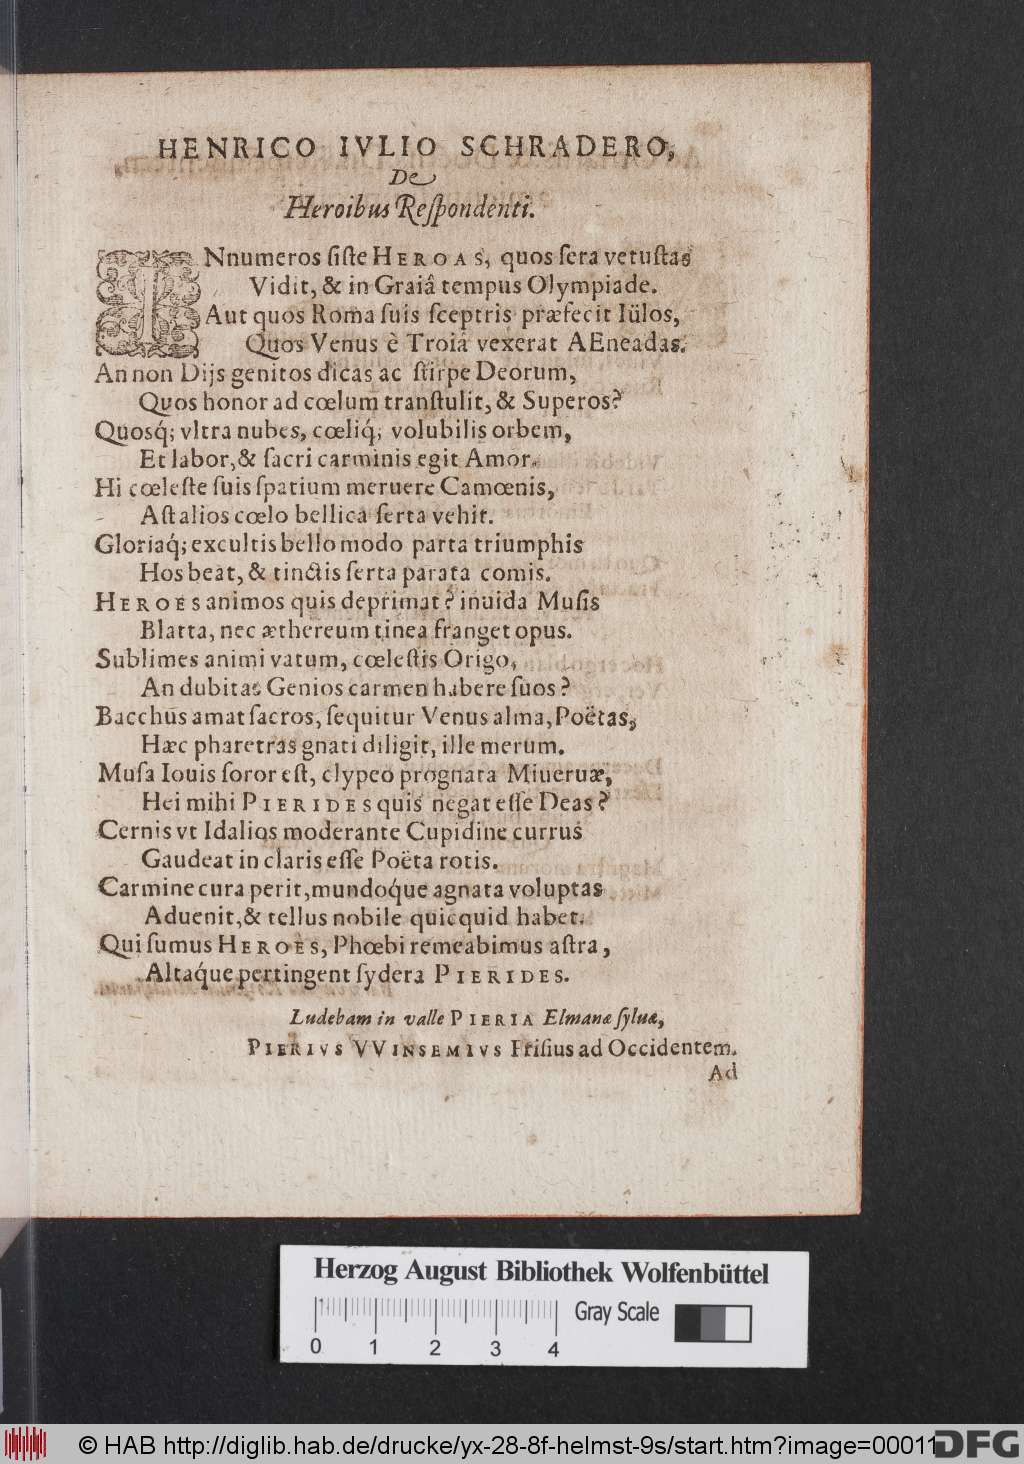 HENRICO IVLIO SCHRADERO,
De
Heroibus Reſpondenti.
INnumeros ſiſte HEROAS, quos ſera vetuſtas
Vidit, & in Graiâ tempus Olympiade.
Aut quos Roma ſuis ſceptris præfecit Iülos,
Quos Venus è Troiâ vexerat AEneadas.
An non Dijs genitos dicas ac ſtirpe Deorum,
Quos honor ad cœlum tranſtulit, & Superos?
Quosq́; vltra nubes, cœliq́; volubilis orbem,
Et labor, & ſacri carminis egit Amor.
Hi cœleſte ſuis ſpatium meruere Camœnis,
Aſt alios cœlo bellica ſerta vehit.
Gloriaq́; excultis bello modo parta triumphis
Hos beat, & tinctis ſerta parata comis.
HEROES animos quis deprimat? inuida Muſis
Blatta, nec æthereum tinea franget opus.
Sublimes animi vatum, cœleſtis Origo,
An dubitas Genios carmen habere ſuos?
Bacchus amat ſacros, ſequitur Venus alma, Poëtas,
Hæc pharetras gnati diligit, ille merum.
Muſa Iouis ſoror eſt, clypeo prognata Miueruæ,
Hei mihi PIERIDES quis negat eſſe Deas?
Cernis vt Idalios moderante Cupidine currus
Gaudeat in claris eſſe Poëta rotis.
Carmine cura perit, mundoq́ue agnata voluptas
Aduenit, & tellus nobile quicquid habet.
Qui ſumus HEROES, Phœbi remeabimus aſtra,
Altaq́ue pertingent ſydera PIERIDES.
Ludebam in valle PIERIA Elmanæ ſyluæ,
PIERIVS VVINSEMIVS Friſius ad Occidentem.
Ad
Herzog August Bibliothek Wolfenbüttel
Gray Scale
0 1 2 3 4
© HAB http://diglib.hab.de/drucke/yx-28-8f-helmst-9s/start.htm?image=00011
DFG